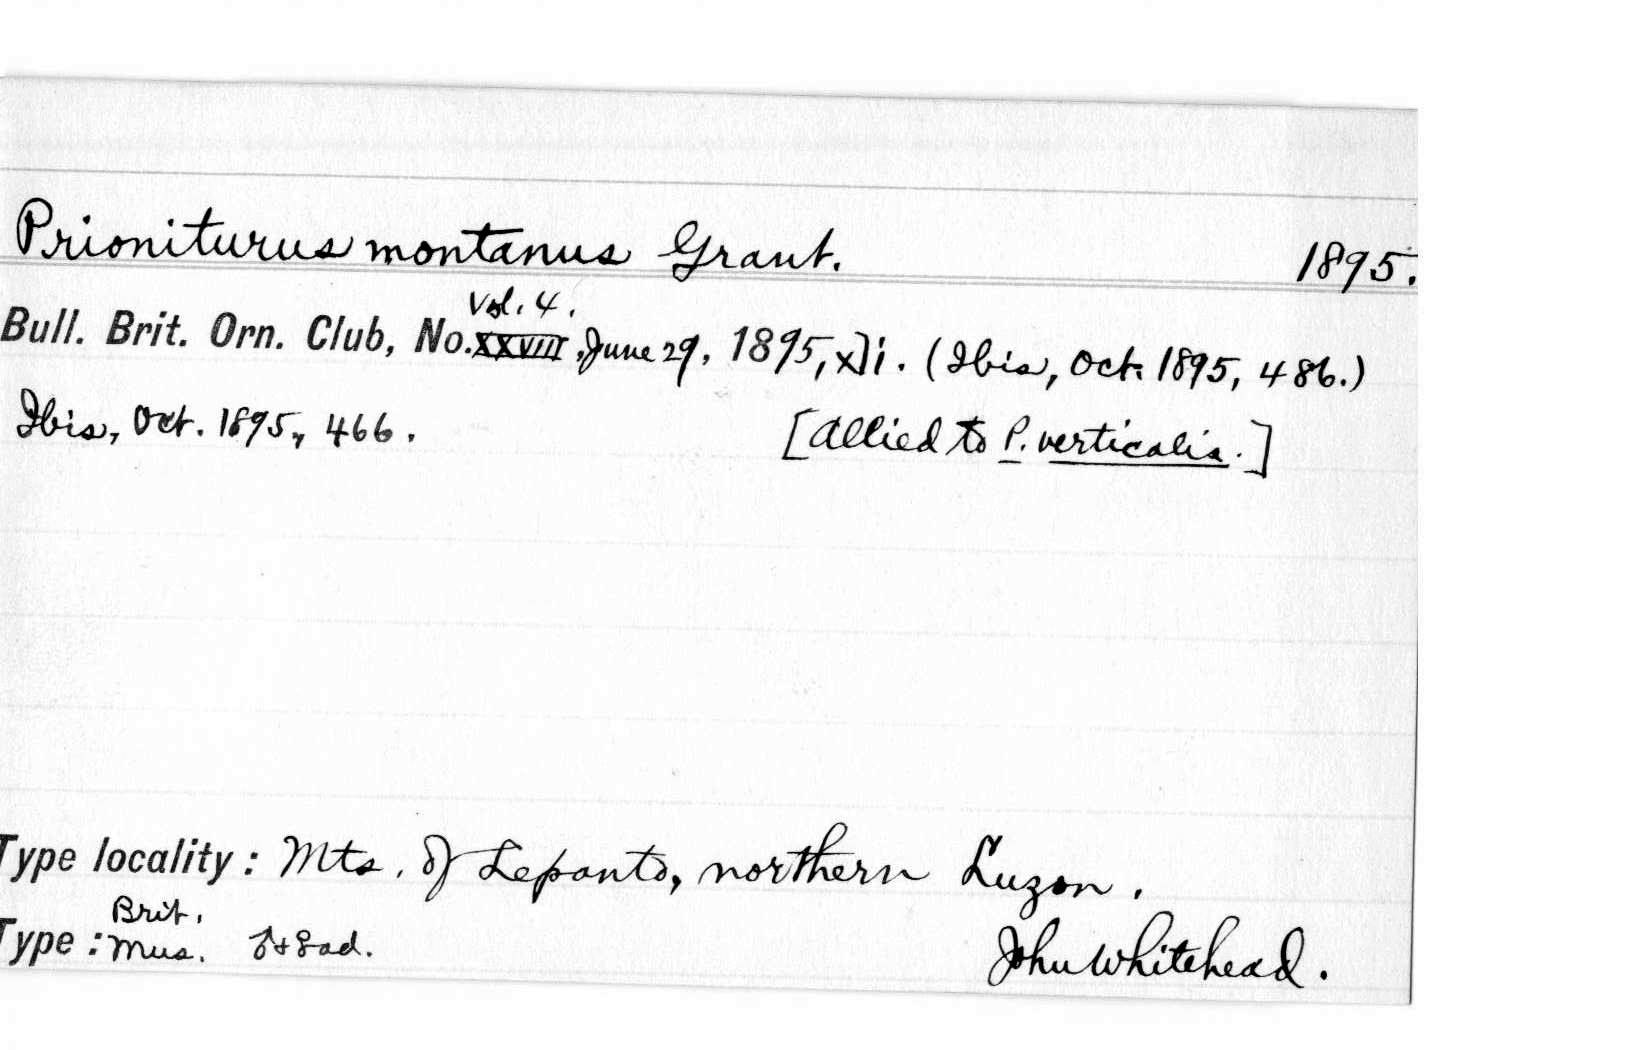 Prioniturus montanus Grant. 1895.
Vol. 4.
Bull. Brit. Orn. Club, No. XXVIII, June 29, 1895, xli. (Ibis, Oct. 1895, 486.)
Ibis, Oct. 1895, 466. [Allied to P. verticalis.]
Type locality: Mts. of Lepanto, northern Luzon.
Brit.
Type: Mus. ♂+♀ad. John Whitehead.